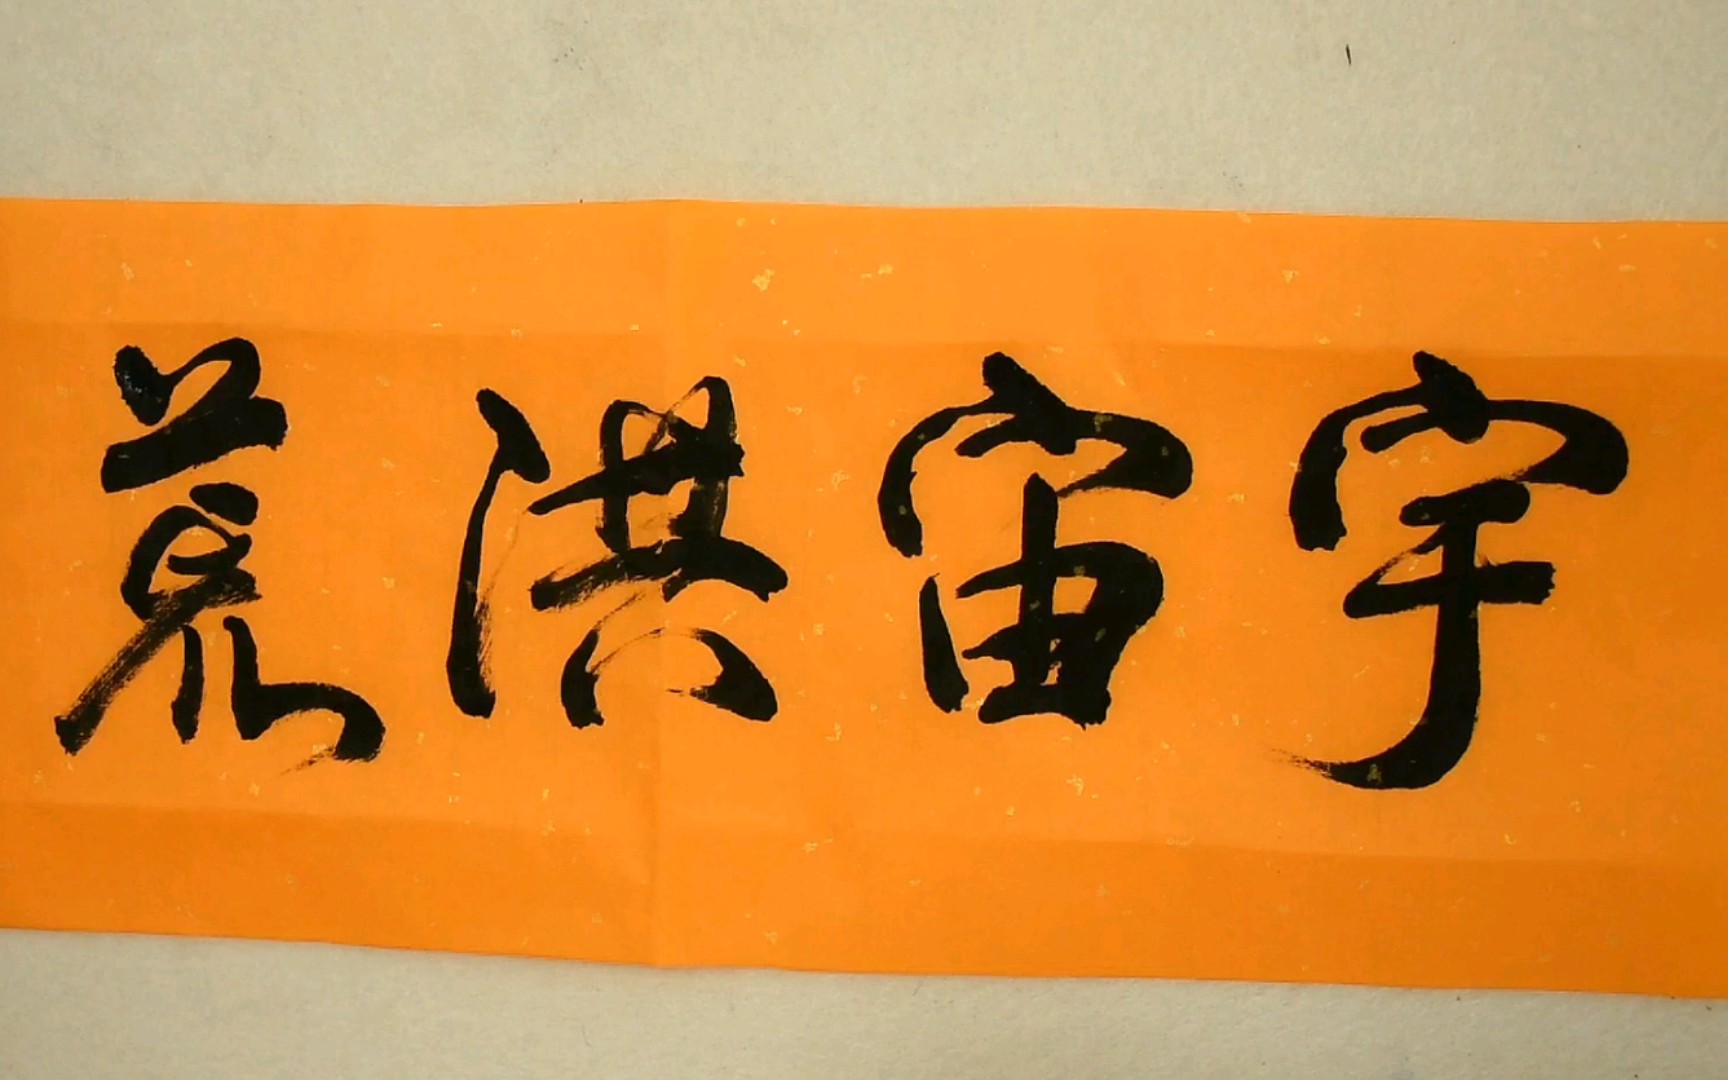 宇宙洪荒